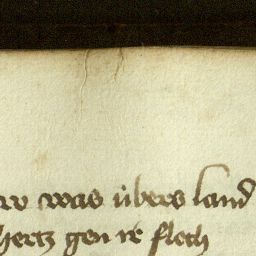 was übers land
hertz gen ir floch